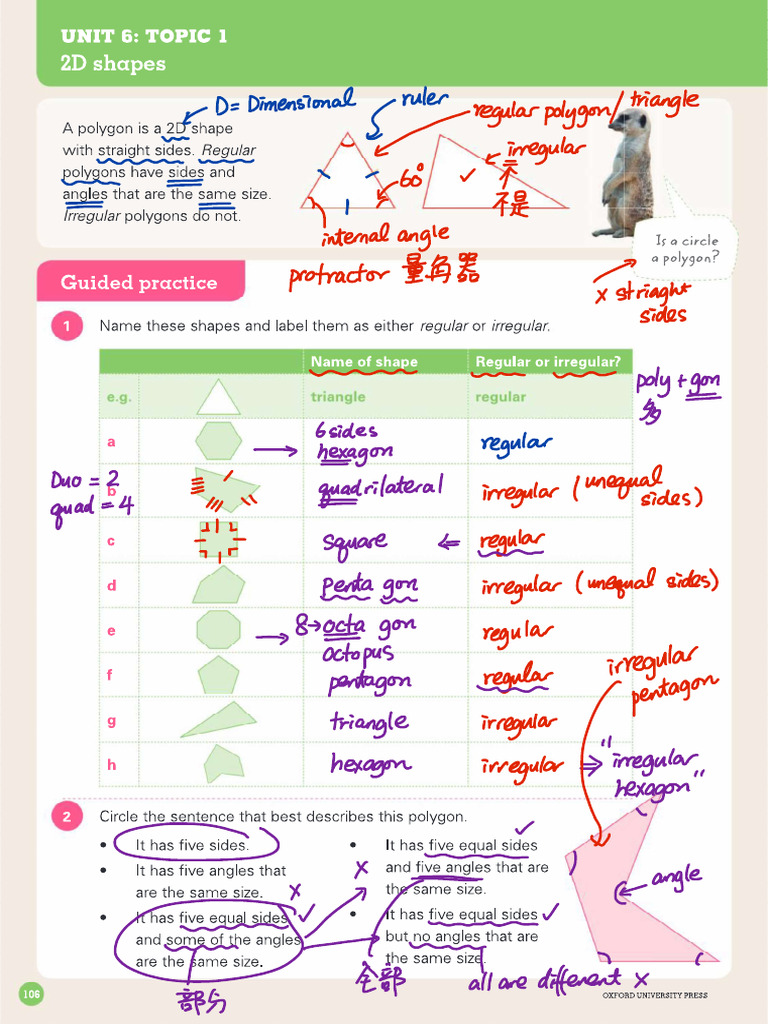 UNIT 6: TOPIC 1
2D shapes
D = Dimensional
ruler
regular polygon / triangle
irregular
不
不是
60°
internal angle
protractor 量角器
A polygon is a 2D shape
with straight sides. Regular
polygons have sides and
angles that are the same size.
Irregular polygons do not.
Is a circle
a polygon?
x striaght
sides
Guided practice
1 Name these shapes and label them as either regular or irregular.
Name of shape Regular or irregular?
e.g. triangle regular
poly + gon
多
a 6 sides
hexagon regular
Duo = 2
quad = 4
b quadrilateral irregular (unequal
sides)
c square ⇐ regular
d penta gon irregular (unequal sides)
e 8→octa gon regular
octopus
f pentagon regular
irregular
pentagon
g triangle irregular
h hexagon irregular ⇒ "irregular
hexagon"
2 Circle the sentence that best describes this polygon.
• It has five sides.
• It has five angles that
are the same size. x
• It has five equal sides ✓
and some of the angles
are the same size.
部分
• It has five equal sides ✓
x and five angles that are
the same size.
• It has five equal sides ✓
but no angles that are
the same size.
全部
all are different x
angle
106
OXFORD UNIVERSITY PRESS